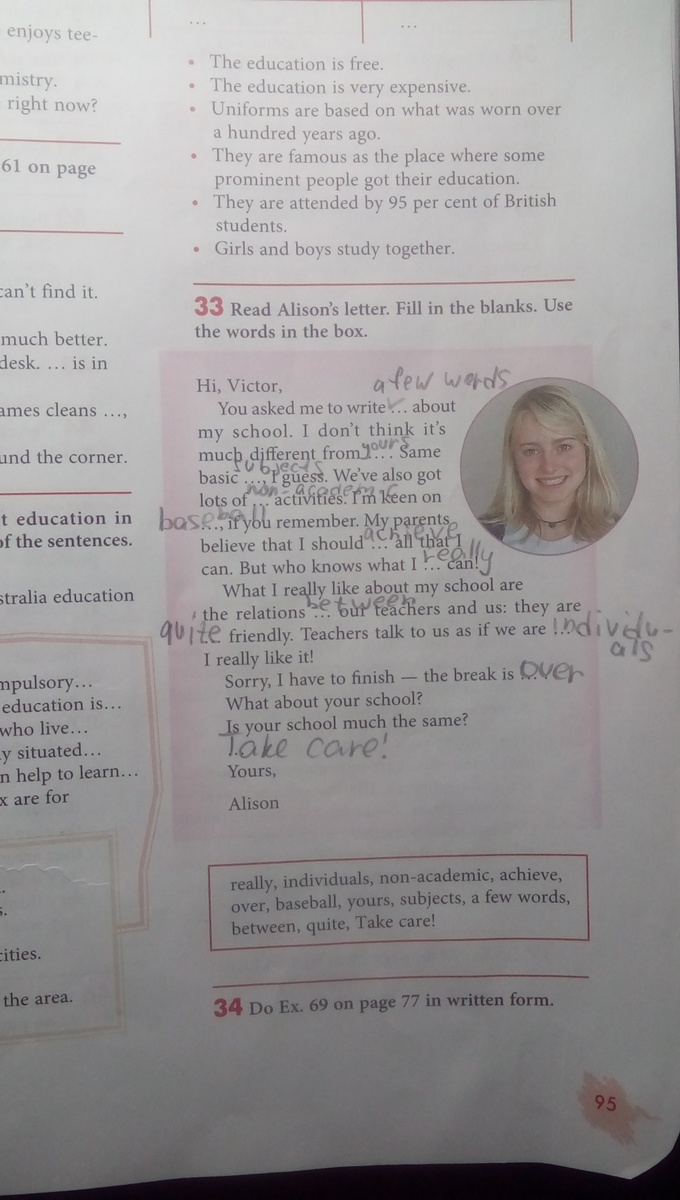 ... ...
enjoys tee-
mistry.
right now?
61 on page
can't find it.
much better.
desk. ... is in
ames cleans ...,
und the corner.
t education in
of the sentences.
stralia education
mpulsory...
education is...
who live...
y situated...
n help to learn...
x are for
.
s.
cities.
the area.
• The education is free.
• The education is very expensive.
• Uniforms are based on what was worn over
a hundred years ago.
• They are famous as the place where some
prominent people got their education.
• They are attended by 95 per cent of British
students.
• Girls and boys study together.
33 Read Alison's letter. Fill in the blanks. Use
the words in the box.
Hi, Victor,
a few words
You asked me to write ... about
my school. I don't think it's
yours
much different from ... . Same
subjects
basic ..., I guess. We've also got
non-academic
lots of ... activities. I'm keen on
baseball
..., if you remember. My parents
achieve
believe that I should ... all that I
really
can. But who knows what I ... can!
What I really like about my school are
between
the relations ... our teachers and us: they are
quite friendly. Teachers talk to us as if we are individu-
als
I really like it!
Sorry, I have to finish — the break is over
What about your school?
Is your school much the same?
Take care!
Yours,
Alison
really, individuals, non-academic, achieve,
over, baseball, yours, subjects, a few words,
between, quite, Take care!
34 Do Ex. 69 on page 77 in written form.
95